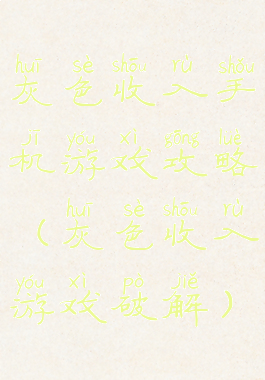 huī sè shōu rù shǒu
灰色收入手
jī yóu xì gōng lüè
机游戏攻略
huī sè shōu rù
（灰色收入
yóu xì pò jiě
游戏破解）